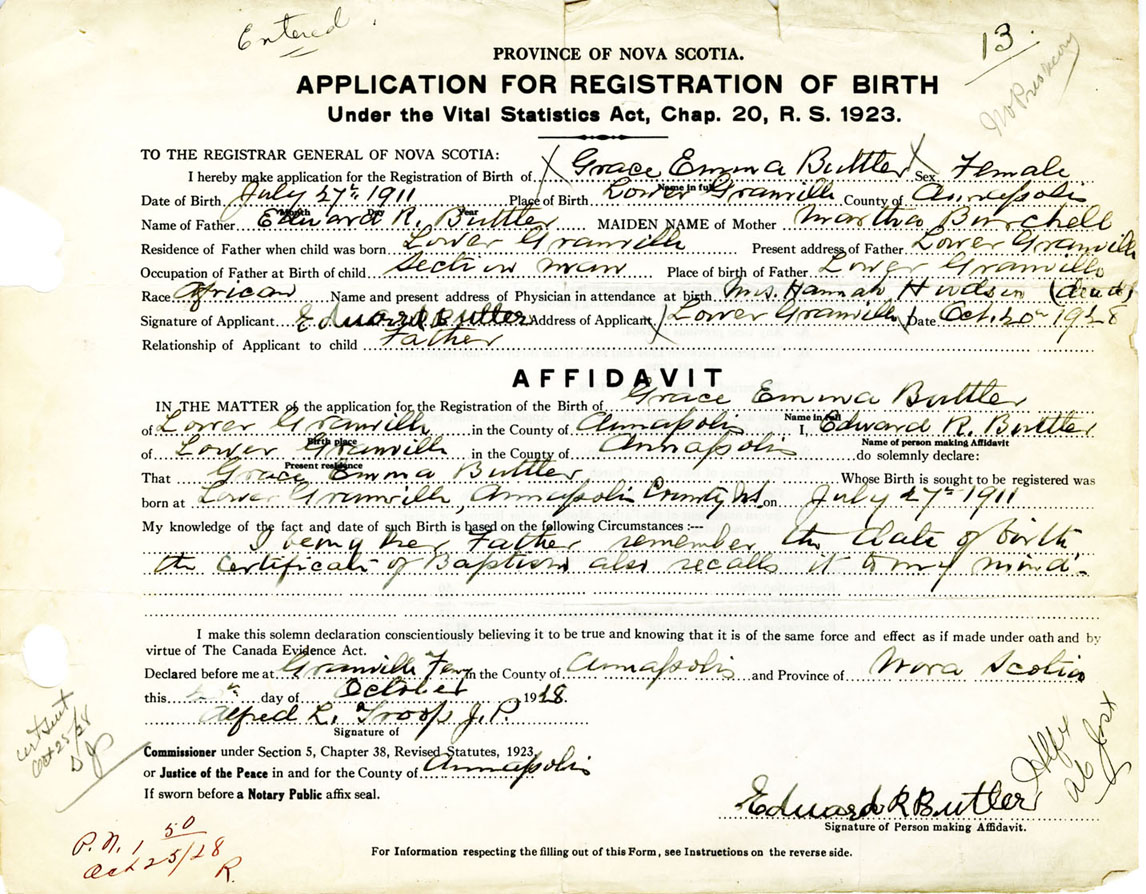 Entered
13.
PROVINCE OF NOVA SCOTIA.
APPLICATION FOR REGISTRATION OF BIRTH
Under the Vital Statistics Act, Chap. 20, R. S. 1923.
TO THE REGISTRAR GENERAL OF NOVA SCOTIA:
I hereby make application for the Registration of Birth of Grace Emma Buttler Sex Female
Name in full
Date of Birth July 27th 1911 Place of Birth Lower Granville County of Annapolis
Month Day Year
Name of Father Edward R. Buttler MAIDEN NAME of Mother Martha Burchell
Residence of Father when child was born Lower Granville Present address of Father Lower Granville
Occupation of Father at Birth of child Section man Place of birth of Father Lower Granville
Race African Name and present address of Physician in attendance at birth Mrs. Hannah Hudson (dead)
Signature of Applicant Edward R Butler Address of Applicant Lower Granville Date Oct. 20th 1928
Relationship of Applicant to child Father
AFFIDAVIT
IN THE MATTER of the application for the Registration of the Birth of Grace Emma Buttler
Name in full
of Lower Granville in the County of Annapolis I, Edward R. Buttler
Birth place Name of person making Affidavit
of Lower Granville in the County of Annapolis do solemnly declare:
Present residence
That Grace Emma Buttler Whose Birth is sought to be registered was
born at Lower Granville, Annapolis County NS on July 27th 1911
My knowledge of the fact and date of such Birth is based on the following Circumstances :--
I being her Father remember the date of birth,
the certificate of Baptism also recalls it to my mind.
I make this solemn declaration conscientiously believing it to be true and knowing that it is of the same force and effect as if made under oath and by
virtue of The Canada Evidence Act.
Declared before me at Granville Ferry in the County of Annapolis and Province of Nova Scotia
this day of October 1928.
Alfred L. Troop J.P.
Signature of
Commissioner under Section 5, Chapter 38, Revised Statutes, 1923,
or Justice of the Peace in and for the County of Annapolis
If sworn before a Notary Public affix seal.
Cert sent
Oct 25/28
Edward R Butler
Signature of Person making Affidavit.
P.N. 1 50
Oct 25/28
R.
For Information respecting the filling out of this Form, see Instructions on the reverse side.